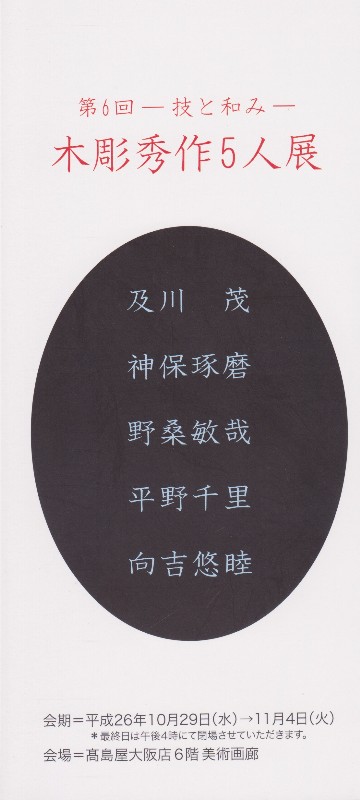 第6回 ― 技と和み ―
木彫秀作5人展
及川　茂
神保琢磨
野桑敏哉
平野千里
向吉悠睦
会期＝平成26年10月29日(水)→11月4日(火)
＊最終日は午後4時にて閉場させていただきます。
会場＝髙島屋大阪店6階 美術画廊